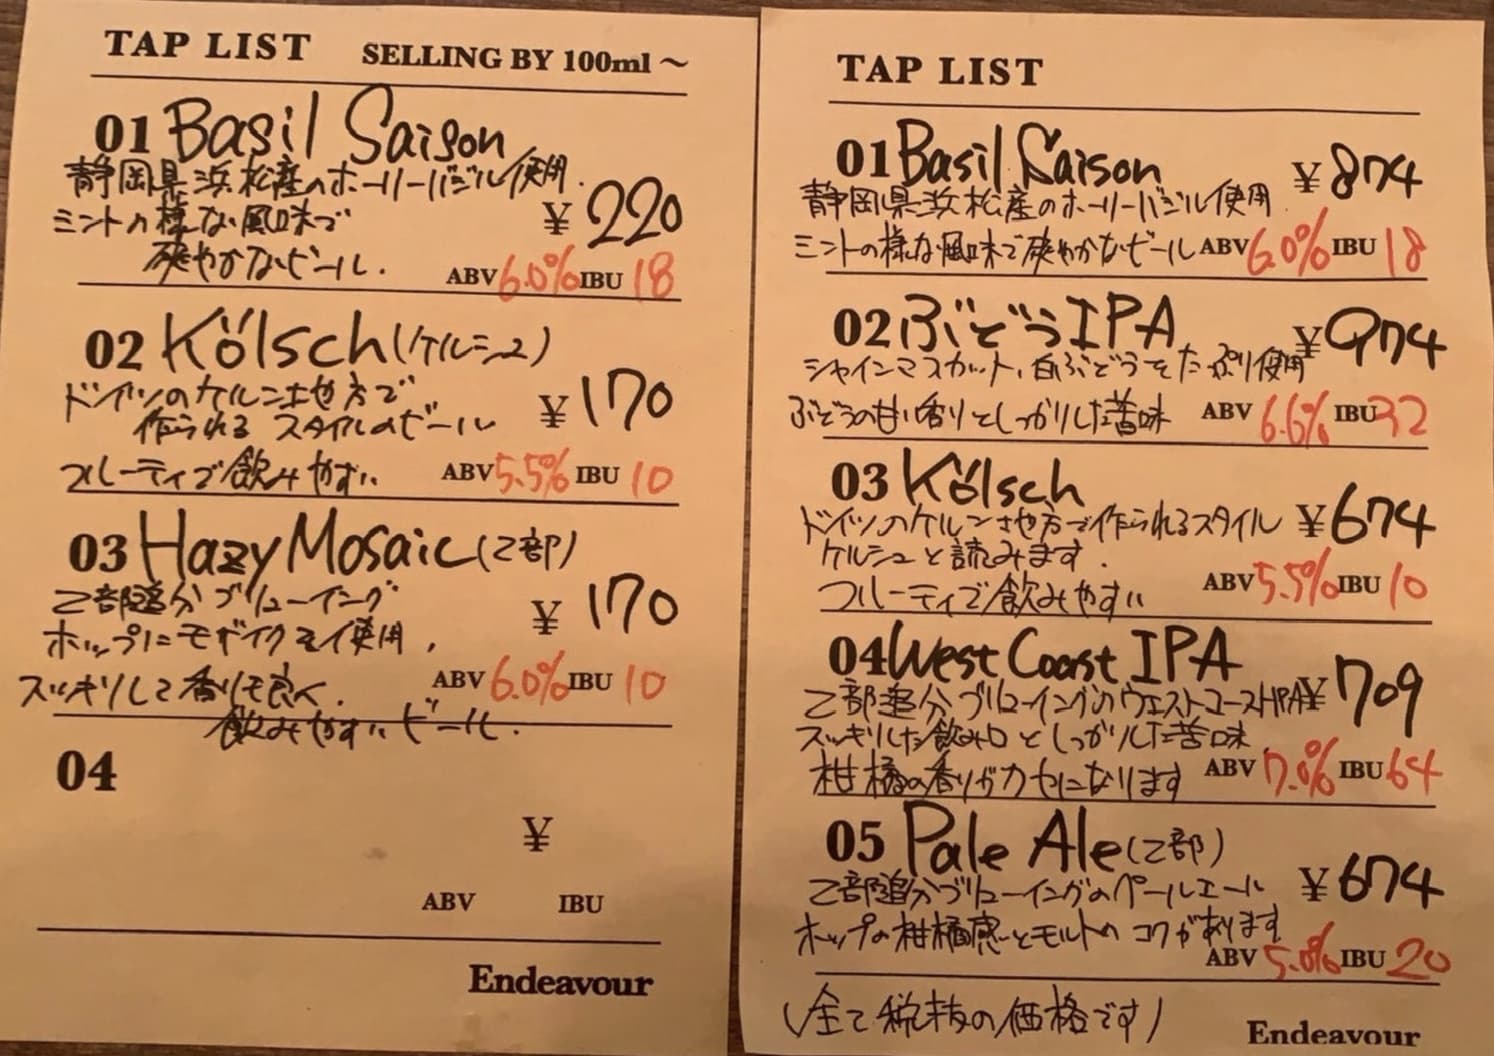 TAP LIST SELLING BY 100ml ～
01 Basil Saison
静岡県浜松産のホーリーバジル使用.
ミントの様な風味で
爽やかなビール.
¥ 220
ABV 6.0% IBU 18
02 Kölsch (ケルシュ)
ドイツのケルン地方で
作られるスタイルのビール
フルーティで飲みやすい
¥ 170
ABV 5.5% IBU 10
03 Hazy Mosaic (乙部)
乙部追分ブリューイング
ホップにモザイクを使用,
スッキリして香りも良く.
飲みやすいビール.
¥ 170
ABV 6.0% IBU 10
04
¥
ABV IBU
Endeavour
TAP LIST
01 Basil Saison ¥ 874
静岡県浜松産のホーリーバジル使用
ミントの様な風味で爽やかなビール ABV 6.0% IBU 18
02 ぶどうIPA ¥ 974
シャインマスカット、白ぶどうをたっぷり使用
ぶどうの甘い香りとしっかりした苦味 ABV 6.6% IBU 32
03 Kölsch
ドイツのケルン地方で作られるスタイル ¥ 674
ケルシュと読みます.
フルーティで飲みやすい ABV 5.5% IBU 10
04 West Coast IPA
乙部追分ブリューイングのウエストコーストIPA ¥ 709
スッキリした飲み口としっかりした苦味,
柑橘の香りがクセになります ABV 7.0% IBU 64
05 Pale Ale (乙部)
乙部追分ブリューイングのペールエール ¥ 674
ホップの柑橘感とモルトのコクがあります
ABV 5.0% IBU 20
(全て税抜の価格です)
Endeavour